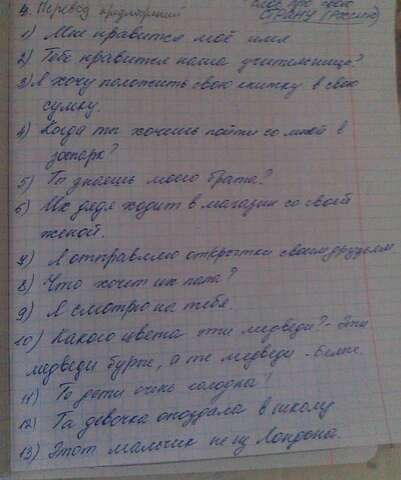 4. Перевод предложений
СТРАНУ (Россия)
1) Мне нравится моё имя
2) Тебе нравится наша учительница?
3) Я хочу положить свою книжку в свою
сумку.
4) Когда ты хочешь пойти со мной в
зоопарк?
5) Ты знаешь моего брата?
6) Их дядя ходит в магазин со своей
женой.
7) Я отправляю открытки своим друзьям.
8) Что хочет их папа?
9) Я смотрю на тебя.
10) Какого цвета эти медведи? - Эти
медведи бурые, а те медведи - белые.
11) Те дети очень голодны!
12) Та девочка опоздала в школу
13) Этот мальчик не из Лондона.